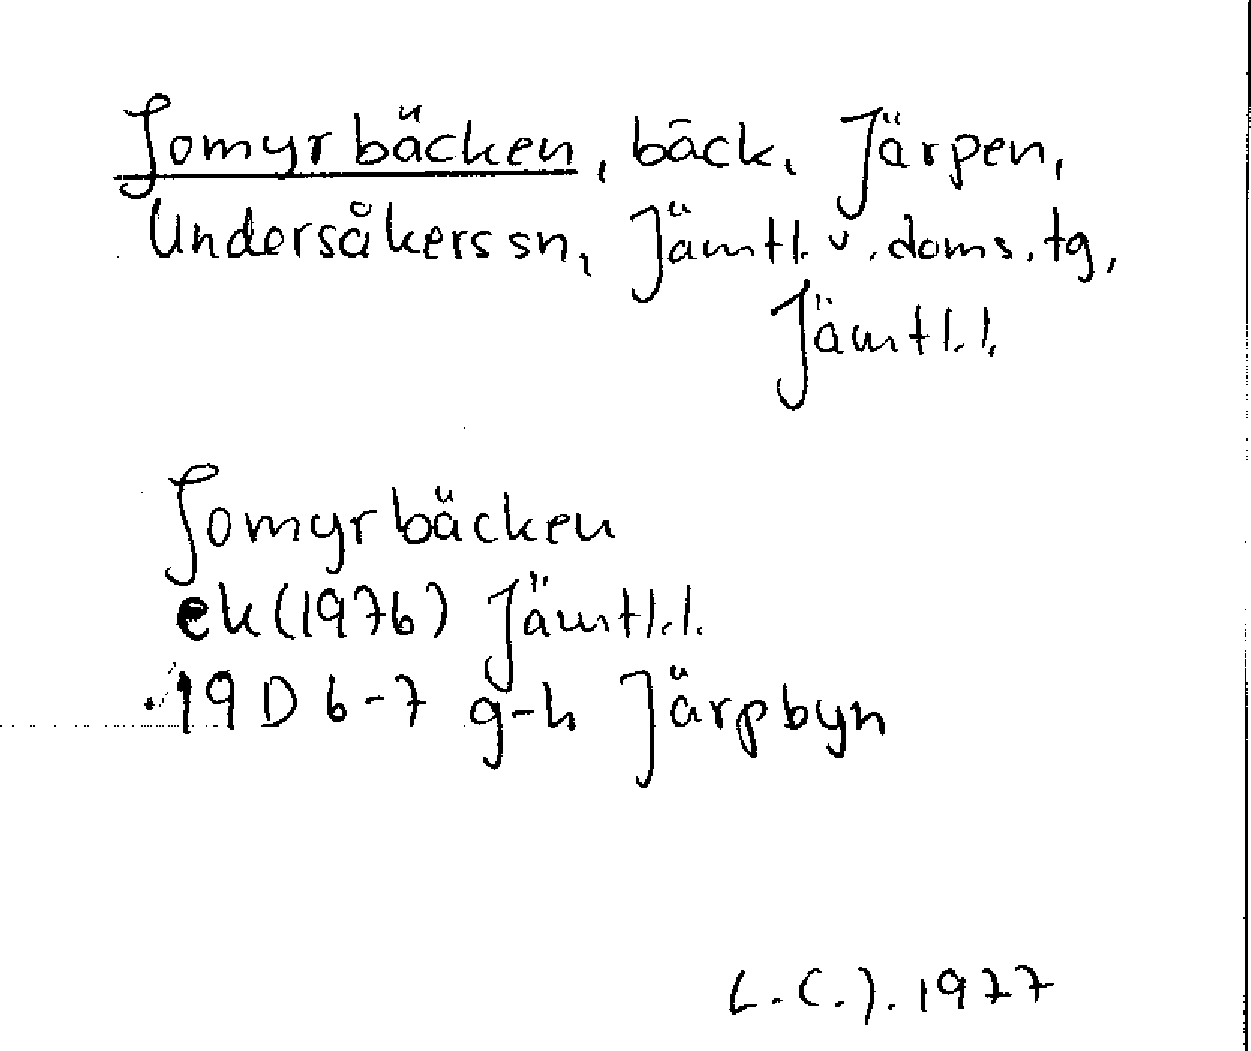 Somyrbäcken, bäck, Järpen,
Undersåkers sn, Jämtl. v. doms. tg,
Jämtl. l.
Somyrbäcken
ek (1976) Jämtl. l.
19 D 6-7 g-h Järpbyn
L.C.J. 1977